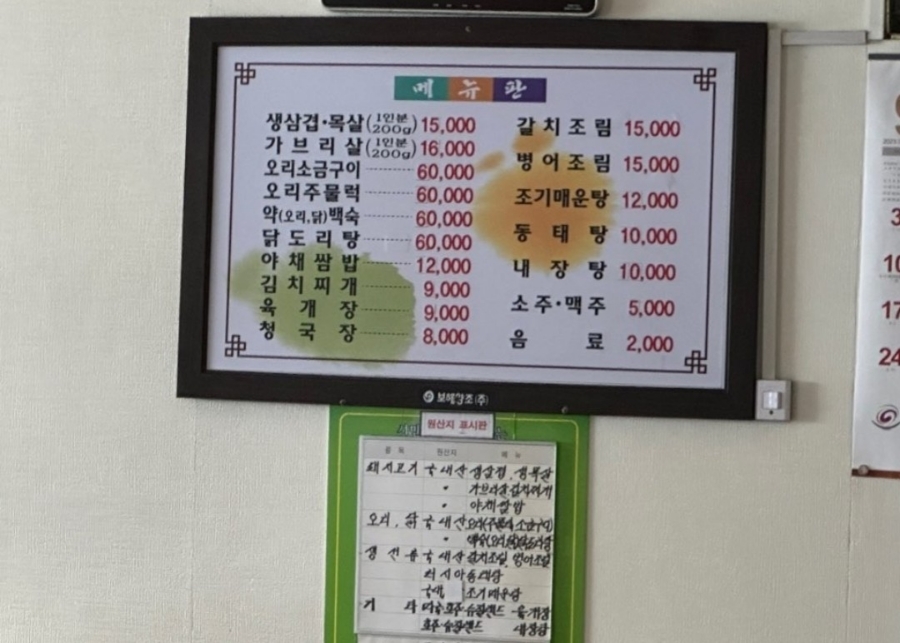 메뉴판
생삼겹·목살(1인분 200g) 15,000
가브리살(1인분 200g) 16,000
오리소금구이 60,000
오리주물럭 60,000
약(오리,닭)백숙 60,000
닭도리탕 60,000
야채쌈밥 12,000
김치찌개 9,000
육개장 9,000
청국장 8,000
갈치조림 15,000
병어조림 15,000
조기매운탕 12,000
동태탕 10,000
내장탕 10,000
소주·맥주 5,000
음료 2,000
보해양조(주)
원산지 표시판
품목 원산지 메뉴
돼지고기 국내산 생삼겹, 생목살
" 가브리살 김치찌개
" 야채쌈밥
오리, 닭 국내산 오리(주물럭, 소금구이)
생선류 국내산 갈치조림, 병어조림
러시아 동태탕
국내 조기매운탕
육개장
내장탕
3
10
17
24